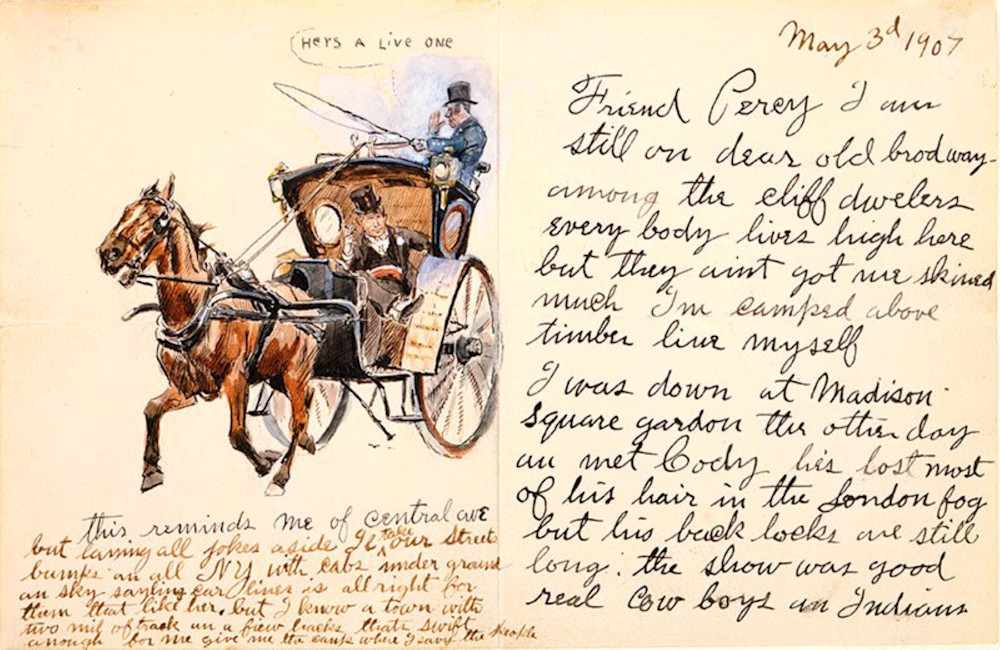 HERS A LIVE ONE
May 3d 1907
Friend Percy I am
still on dear old brodway
among the cliff dwelers
every body lives high here
but they aint got me skined
much I'm camped above
timber line myself
I was down at Madison
Square gardon the other day
an met Cody he's lost most
of his hair in the London fog
but his back locks are still
long. the show was good
real Cow boys an Indians
this reminds me of central ave
but laying all jokes aside Il take our streets
bumps an all NY with cabs under ground
an sky sayling car lines is all right for
them that like her. but I know a town with
two mil of track an a fiew hacks thats swift
enough for me give me the camp where I savy the people